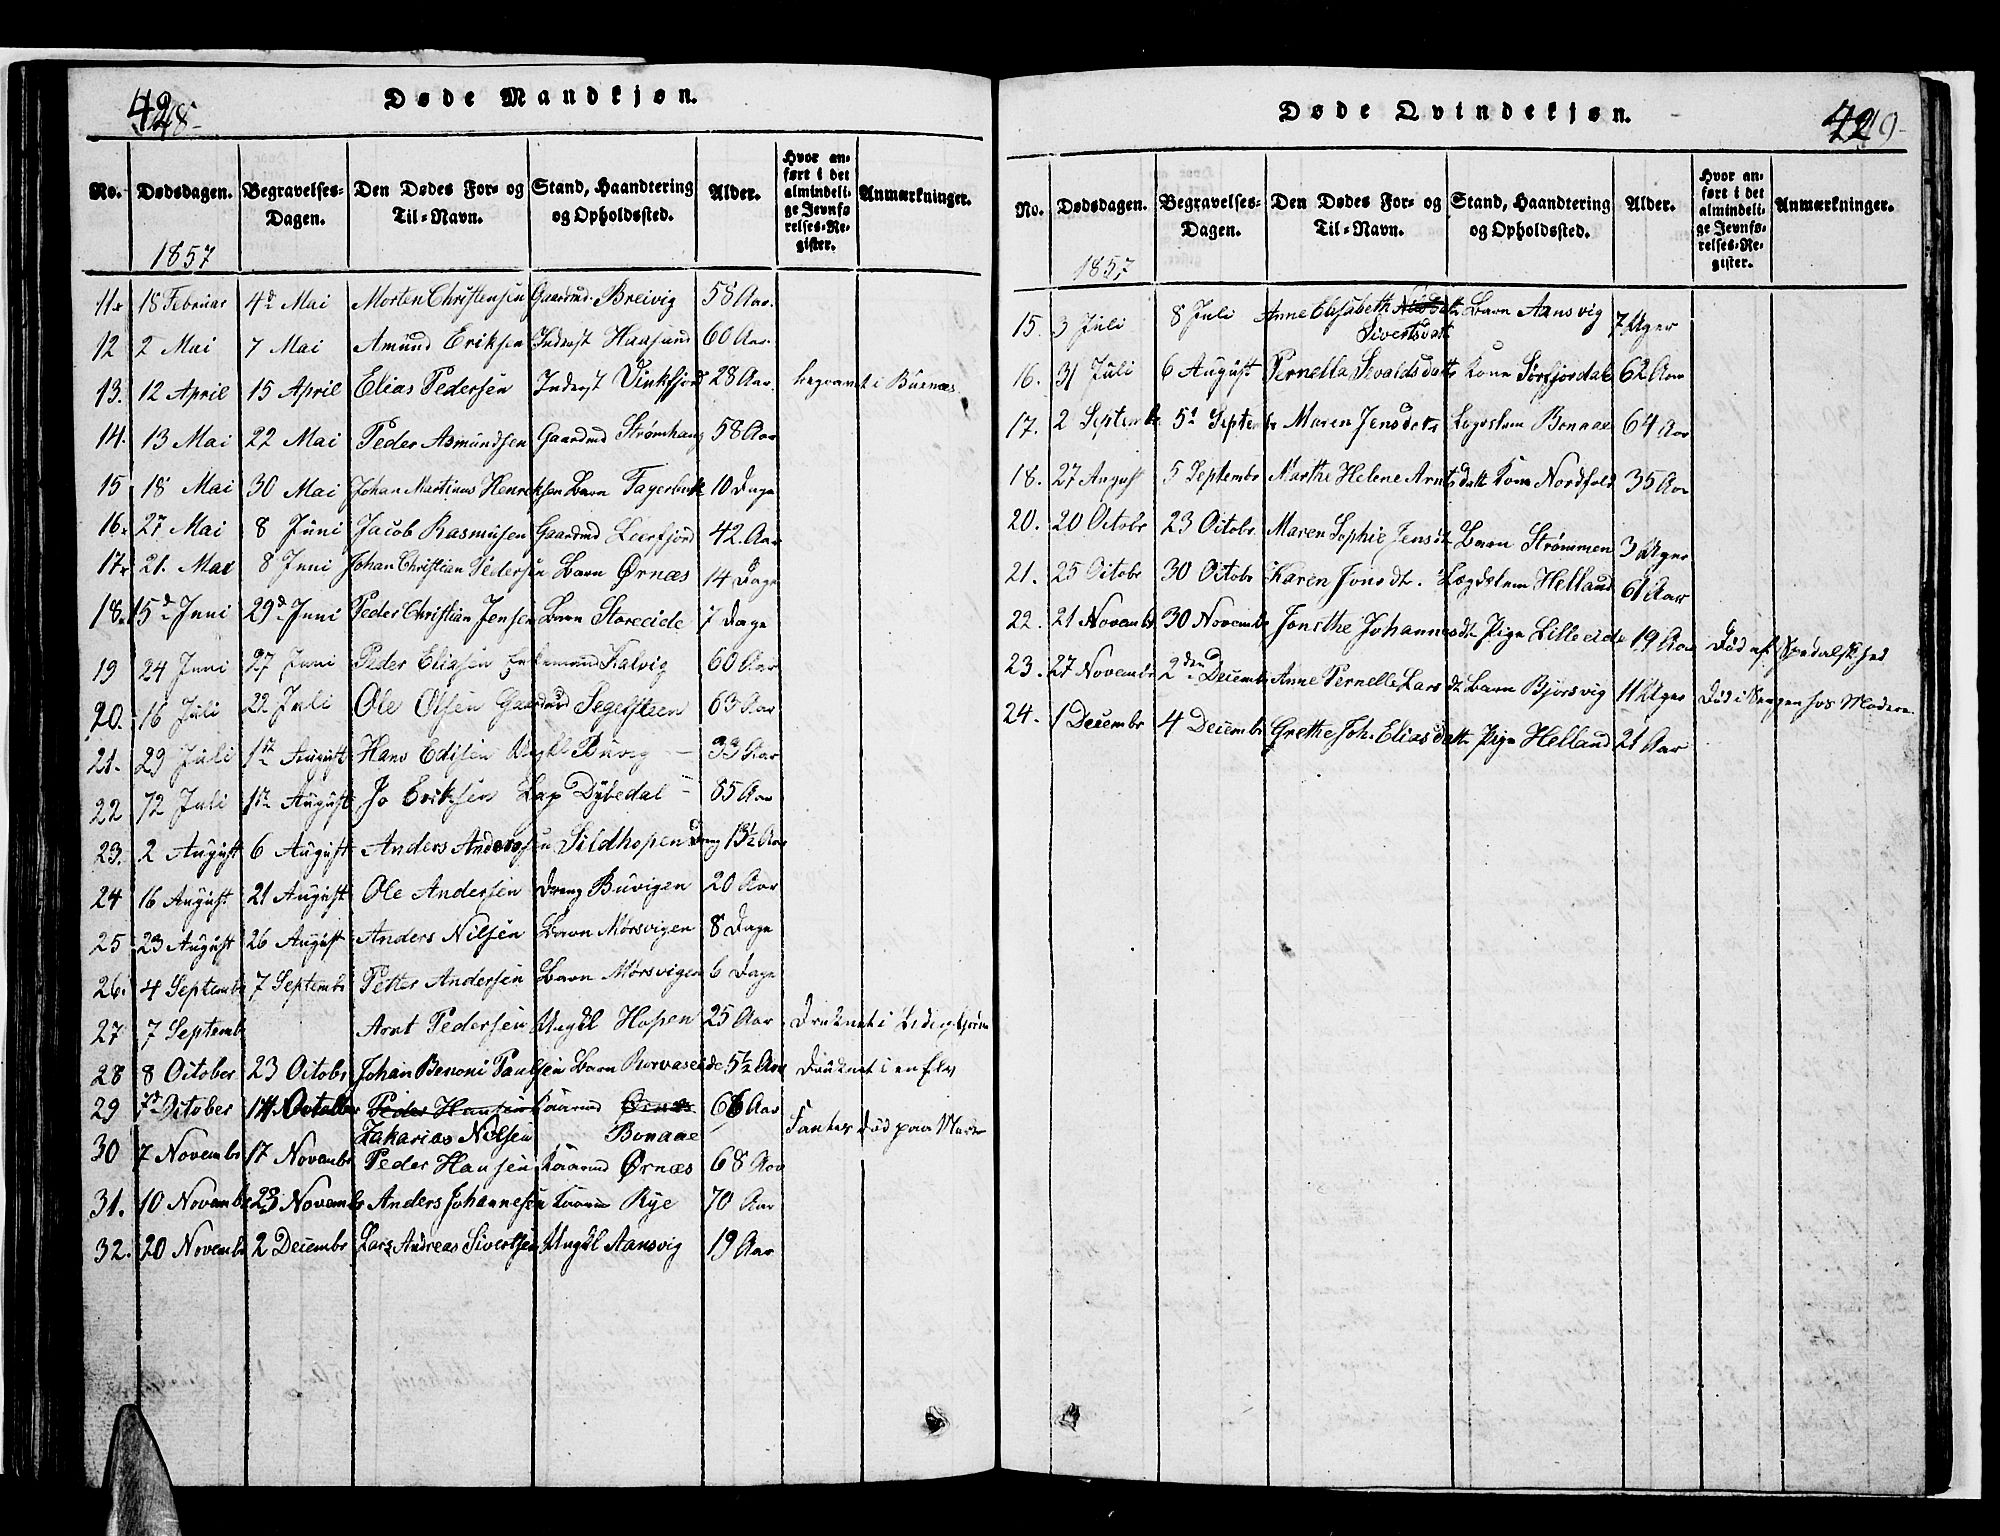 42
Døde Mandkjøn.
No. Dødsdagen. Begravelses-Dagen. Den Dødes For- og Til-Navn. Stand, Haandtering og Opholdssted. Alder. Hvor anført i det almindelige Jevnførelses-Register. Anmærkninger.
1857
11 18 Februar 4d Mai Morten Christensen Gaardmd Breivig 58 Aar
12 2 Mai 7 Mai Amund Eriksen Inderst Haasund 60 Aar
13. 12 April 15 April Elias Pedersen Inderst Vinkfjord 28 Aar begravet i Buenæs
14. 13 Mai 22 Mai Peder Asmundsen Gaardmd Strømhaug 58 Aar
15 18 Mai 30 Mai Johan Martinus Henriksen Barn Fagerbak 10 Dage
16 27 Mai 8 Juni Jacob Rasmusen Gaardmd Leerfjord 42 Aar
17 21. Mai 8 Juni Johan Christian Pedersen Barn Ørnæs 14 Dage
18 15d Juni 29d Juni Peder Christian Jensen Barn Storeeide 7 Dage
19 24 Juni 27 Juni Peder Eliasen Enkemand Kalvig 60 Aar
20. 16 Juli 22 Juli Ole Olsen Gaardmd Segelsteen 63 Aar
21. 29 Juli 1st August Hans Edisen Ungkl Buvig 33 Aar
22 12 Juli 1st August Jo Eriksen Lap Dybedal 85 Aar
23. 2 August 6 August Anders Andersen Sildhopen Dreng 13½ Aar
24 16 August 21 August Ole Andersen Dreng Buvigen 20 Aar
25 23 August 26 August Anders Nilsen Barn Mørsvigen 8 Dage
26. 4 Septembr 7 Septembr Petter Andersen Barn Mørsvigen 6 Dage
27 7 Septemb Arnt Pedersen Ungkl Hopen 25 Aar Druknet i
28 8 October 23 Octobr Johan Benoni Paulsen Barn Rorvaseide 5½ Aar Druknet i en Elv
29 7d October 14 October Peder Hansen Kaarmd Ørnæs 66 Aar
Zakarias Nilsen Bonaae Fantes død paa
30 7 Novembr 17 Novembr Peder Hansen Kaarmd Ørnæs 68 Aar
31. 10 Novembr 23 Novembr Anders Johannesen Kaarm Rye 70 Aar
32. 20 Novembr 2 Decembr Lars Andreas Sivertsen Ungkl Aansvig 19 Aar
Døde Qvindekjøn.
No. Dødsdagen. Begravelses-Dagen. Den Dødes For- og Til-Navn. Stand, Haandtering og Opholdssted. Alder. Hvor anført i det almindelige Jevnførelses-Register. Anmærkninger.
1857
15. 3 Juli 8 Juli Anne Elisabeth Barn Aansvig 7 Uger
Sivertsdatt
16. 31 Juli 6 August Pernella Sivaldsdatt Kone Sørfjordal 62 Aar
17. 2 Septembr 5d Septembr Maren Jensdatr Legdslem Bonaae 64 Aar
18. 27 August 5 Septembr Marthe Helene Arntsdatt Kone Nordfold 35 Aar
20. 20 Octobr 23 Octobr Maren Sophie Jensdtr Barn Strømmen 3 Uger
21. 25 Octobr 30 Octobr Karen Jonsdt. Lægdslem Helland 61 Aar
22. 21 Novembr 30 Novembr Jonethe Johannesdtr Pige Lilleeide 19 Aar Død af Spedalskhed
23. 27 Novembr 2den Decembr Anne Pernelle Larsdt Barn Bjørsvig 11 Uger Død i Sengen hos Moderen
24. 1 Decembr 4 Decembr Grethe Joh. Eliasdatt Pige Helland 21 Aar